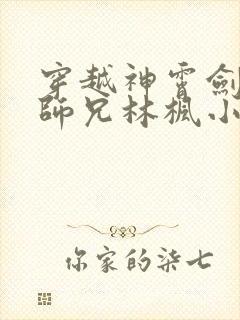 穿越神霄劍
師兄林楓小
你家的柒七